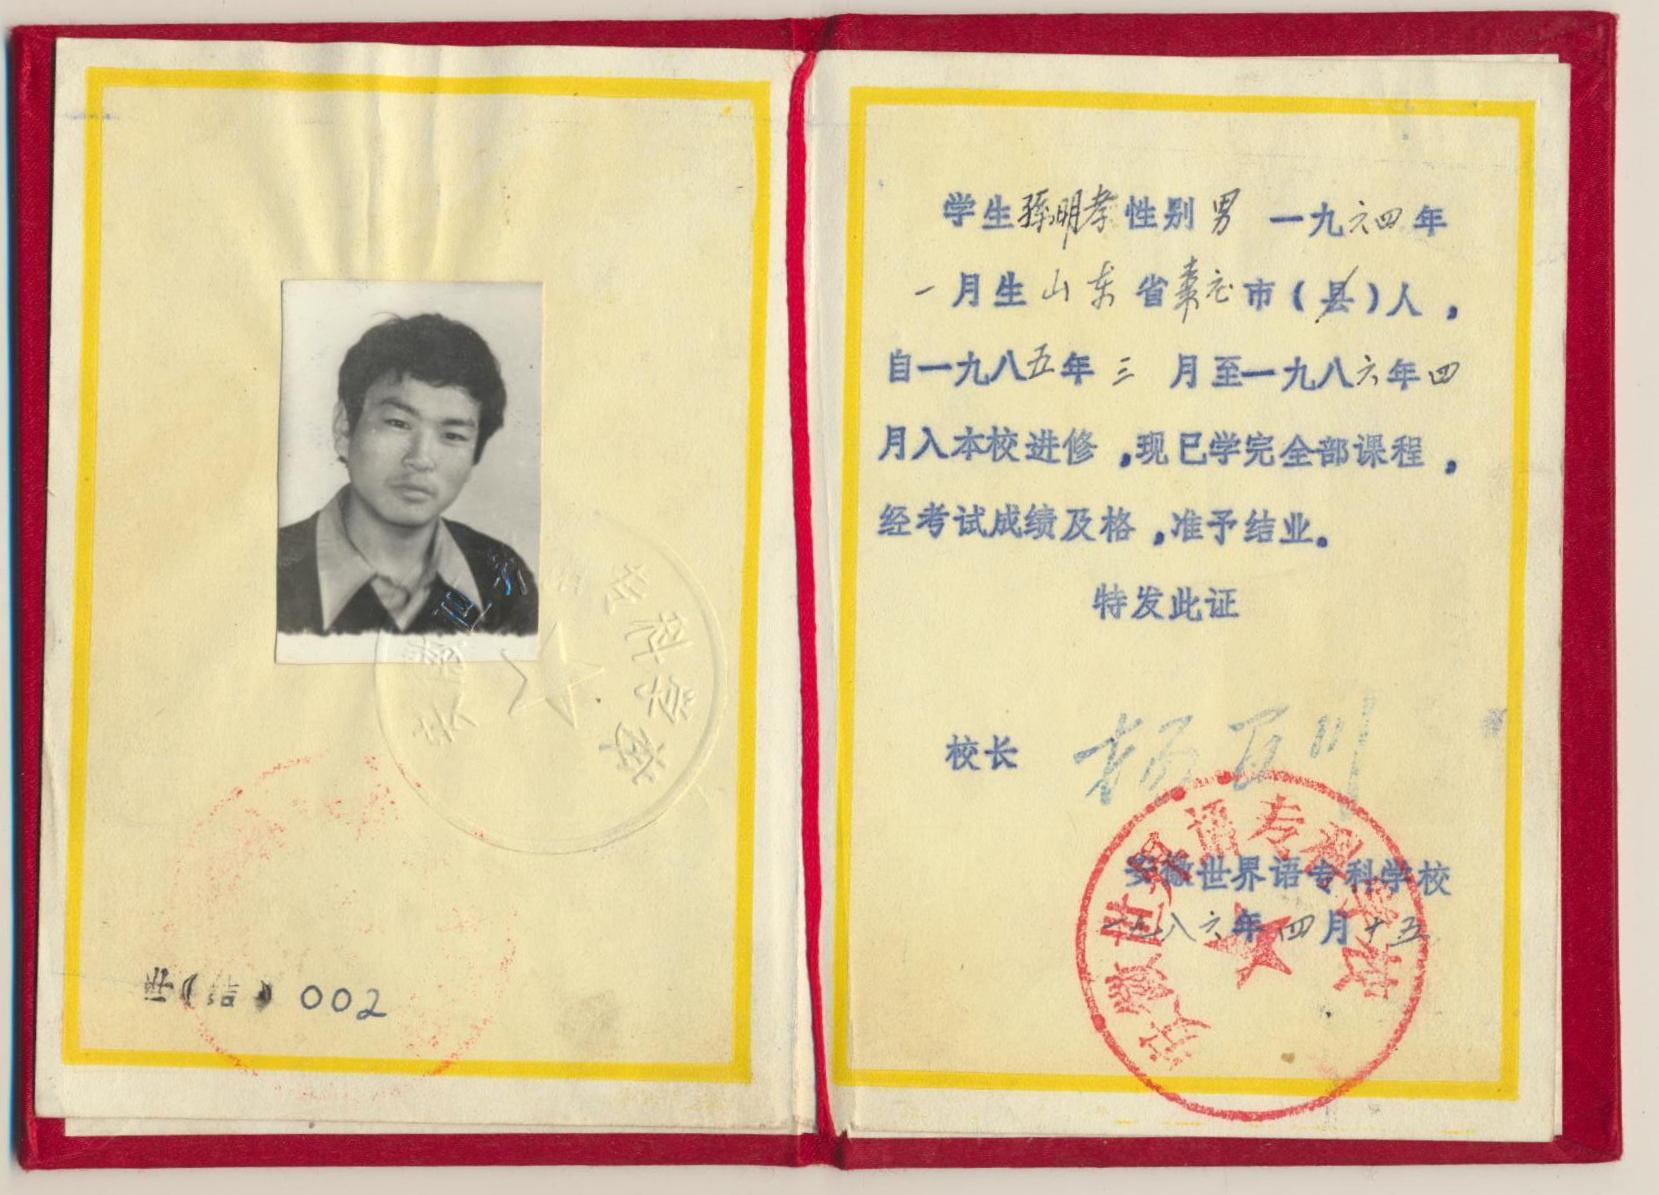 世(结)002
安徽世界语专科学校
学生孫明孝性别男 一九六四年
一月生山东省枣庄市(县)人,
自一九八五年三月至一九八六年四
月入本校进修,现已学完全部课程,
经考试成绩及格,准予结业。
特发此证
校长 杨百川
安徽世界语专科学校
一九八六年四月十五
安徽世界语专科学校